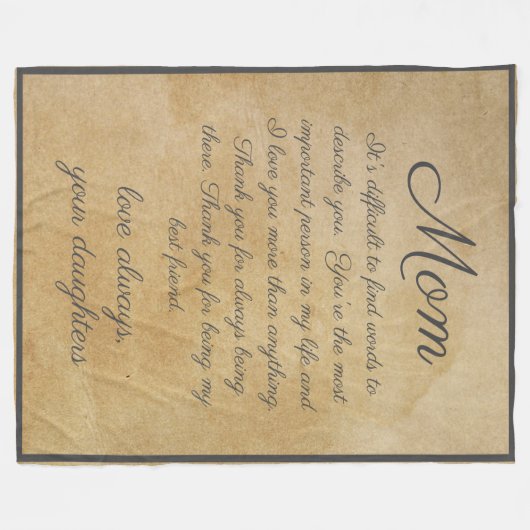 Mom
It's difficult to find words to
describe you. You're the most
important person in my life and
I love you more than anything.
Thank you for always being
there. Thank you for being my
best friend.
love always,
your daughters